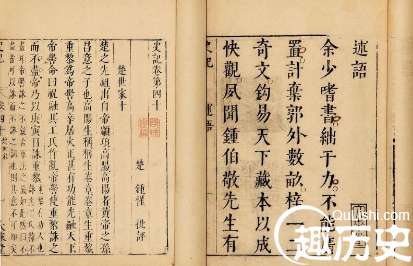 述語
余少嗜書絀于力不能
置計棄郭外數畝梓一二
奇文鈎易天下藏本以成
快觀夙聞鍾伯敬先生有
史記 述語
史記卷第四十
楚 鍾惺 批評
楚世家十
楚之先祖出自帝顓頊高陽高陽者黃帝之孫
昌意之子也高陽生稱稱生卷章卷章生重黎
重黎爲帝嚳高辛居火正甚有功能光融天下
帝嚳命曰祝融共工氏作亂帝嚳使重黎誅之
而不盡帝乃以庚寅日誅重黎
QuLishi.com
趣历史